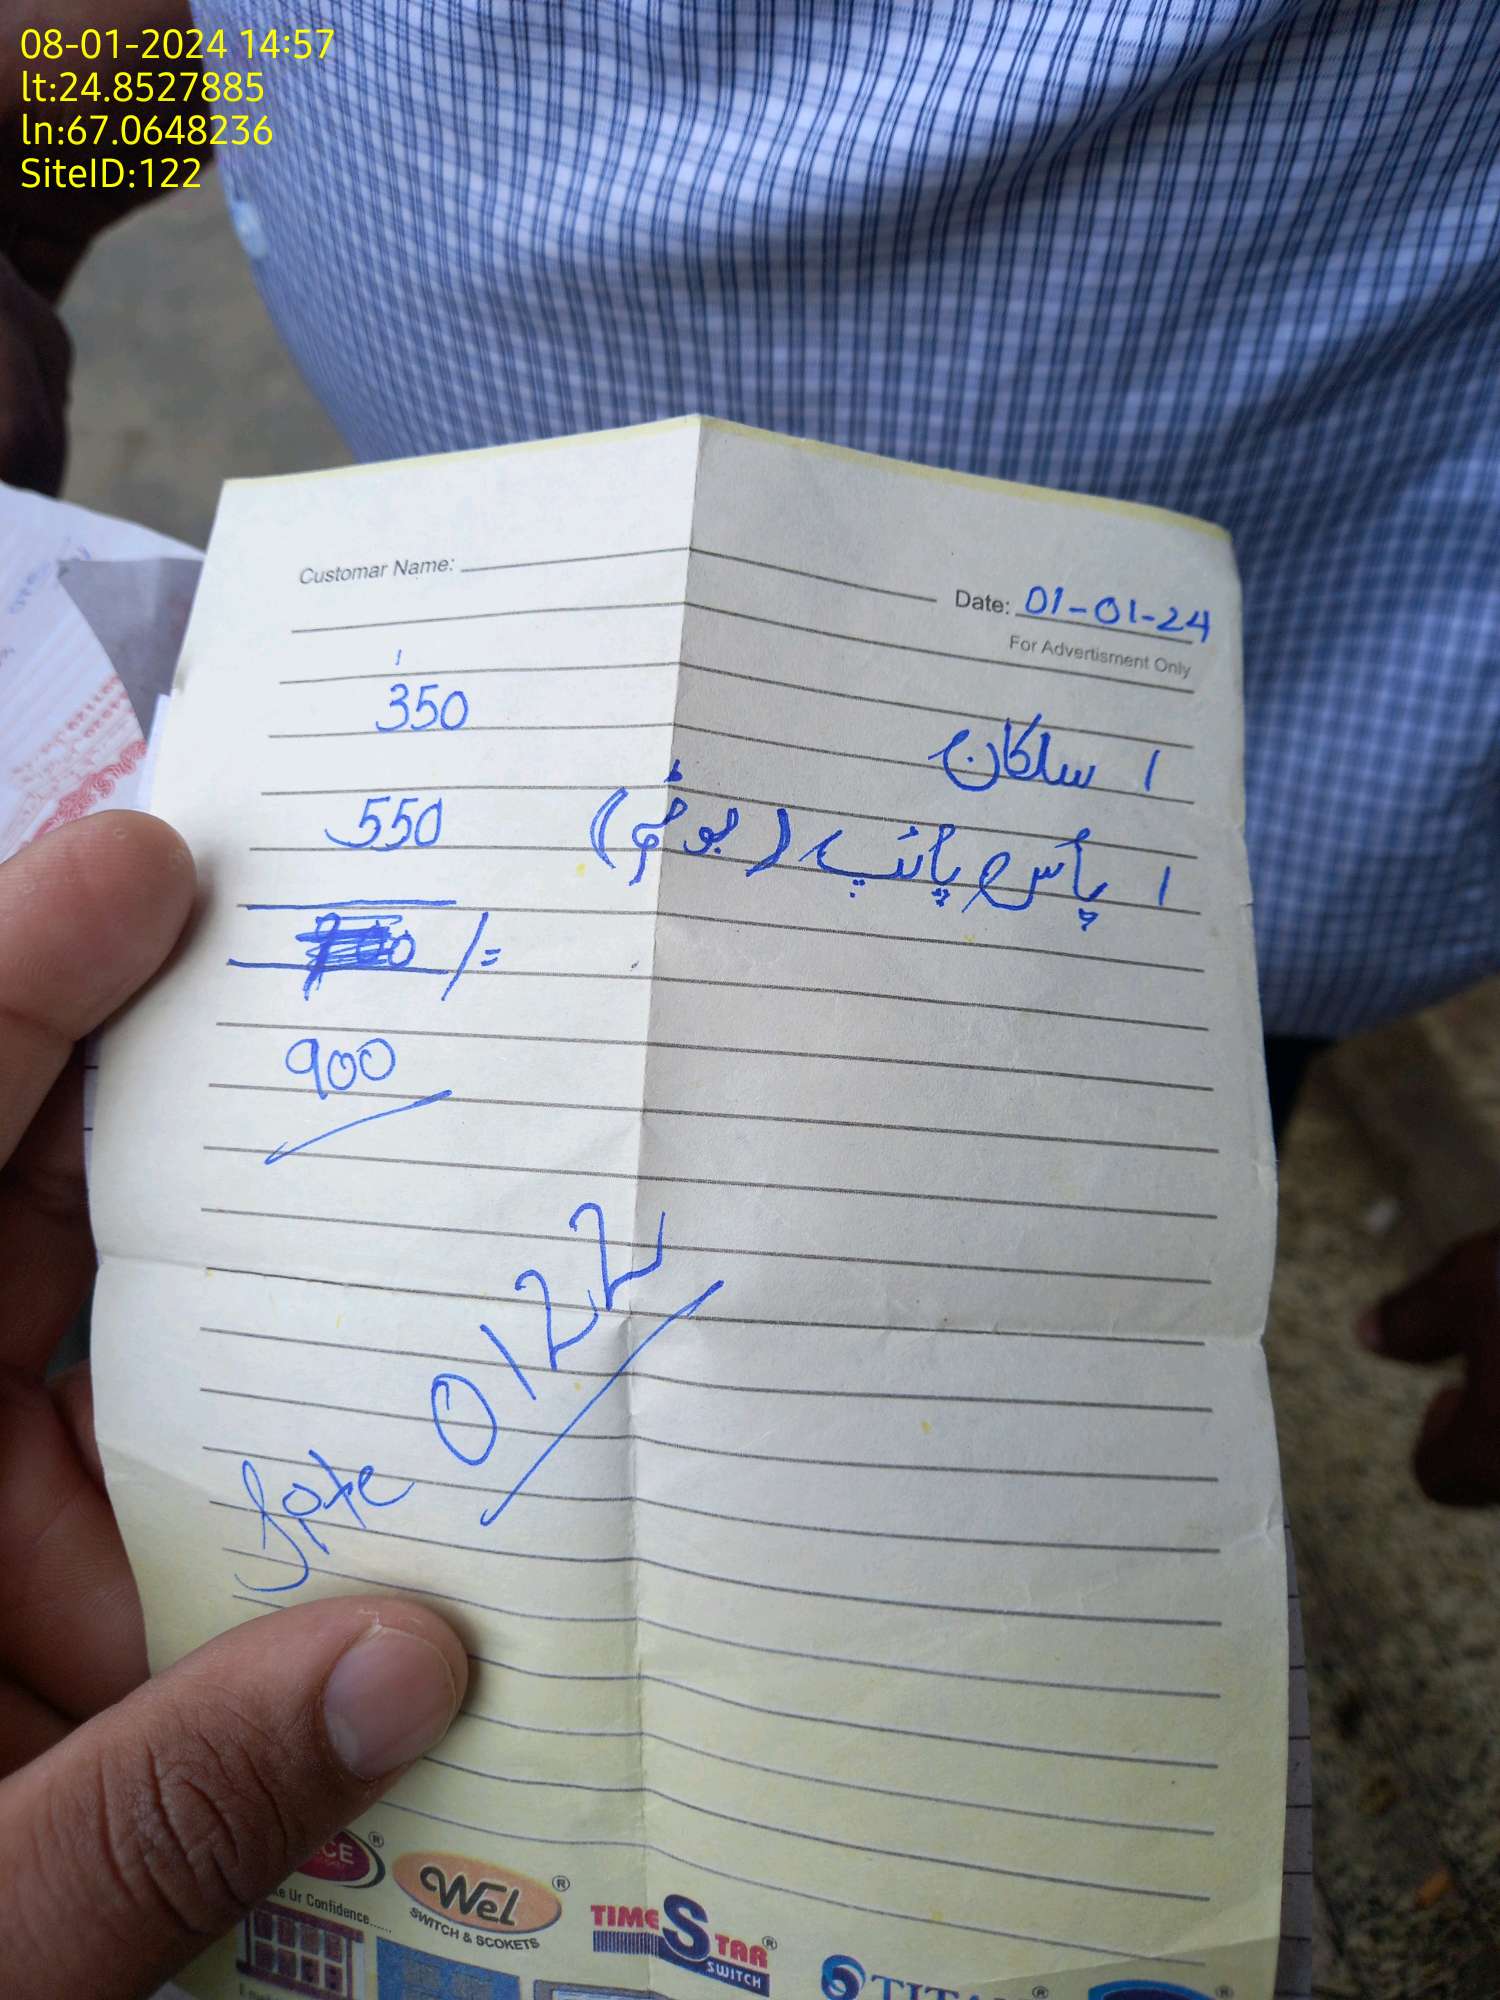 08-01-2024 14:57
lt:24.8527885
ln:67.0648236
SiteID:122
Customar Name:
Date: 01-01-24
For Advertisment Only
1 سلکان 350
1 پائپ 550
/=
900
0122
CE ®
Ur Confidence......
WEL ®
SWITCH & SCOKETS
TIME STAR ®
SWITCH
®